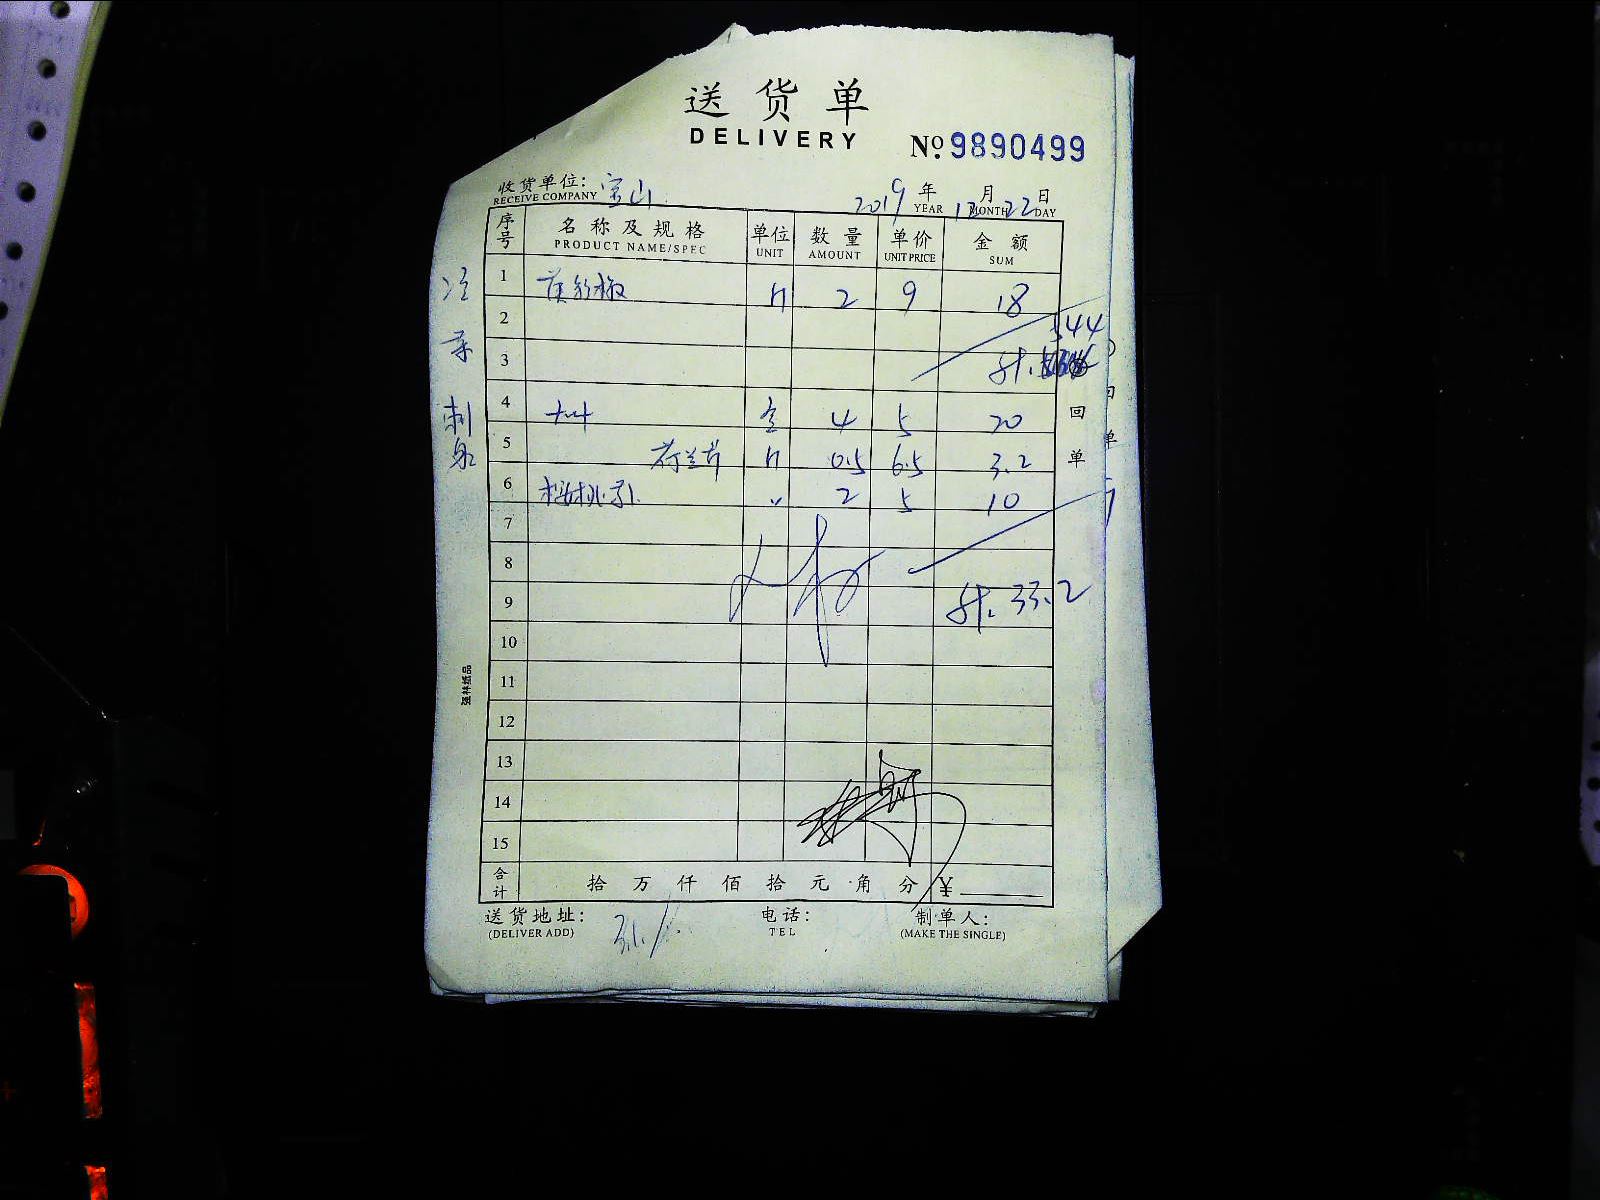 送货单
DELIVERY
№ 9890499
收货单位: 宝山
RECEIVE COMPANY
2019 年 12 月 22 日
YEAR MONTH DAY
序号 名称及规格 单位 数量 单价 金额
PRODUCT NAME/SPEC UNIT AMOUNT UNIT PRICE SUM
1 2 9 18
2 544
3 计.
4 4 5 20
5 荷兰芹 0.5 6.5 3.2
6 樱桃 〃 2 5 10
7
8
9 计. 33.2
10
11
12
13
14
15
合计 拾 万 仟 佰 拾 元 角 分 ¥
送货地址: 电话: 制单人:
(DELIVER ADD) TEL (MAKE THE SINGLE)
冷菜
刺身
回单
强林纸品